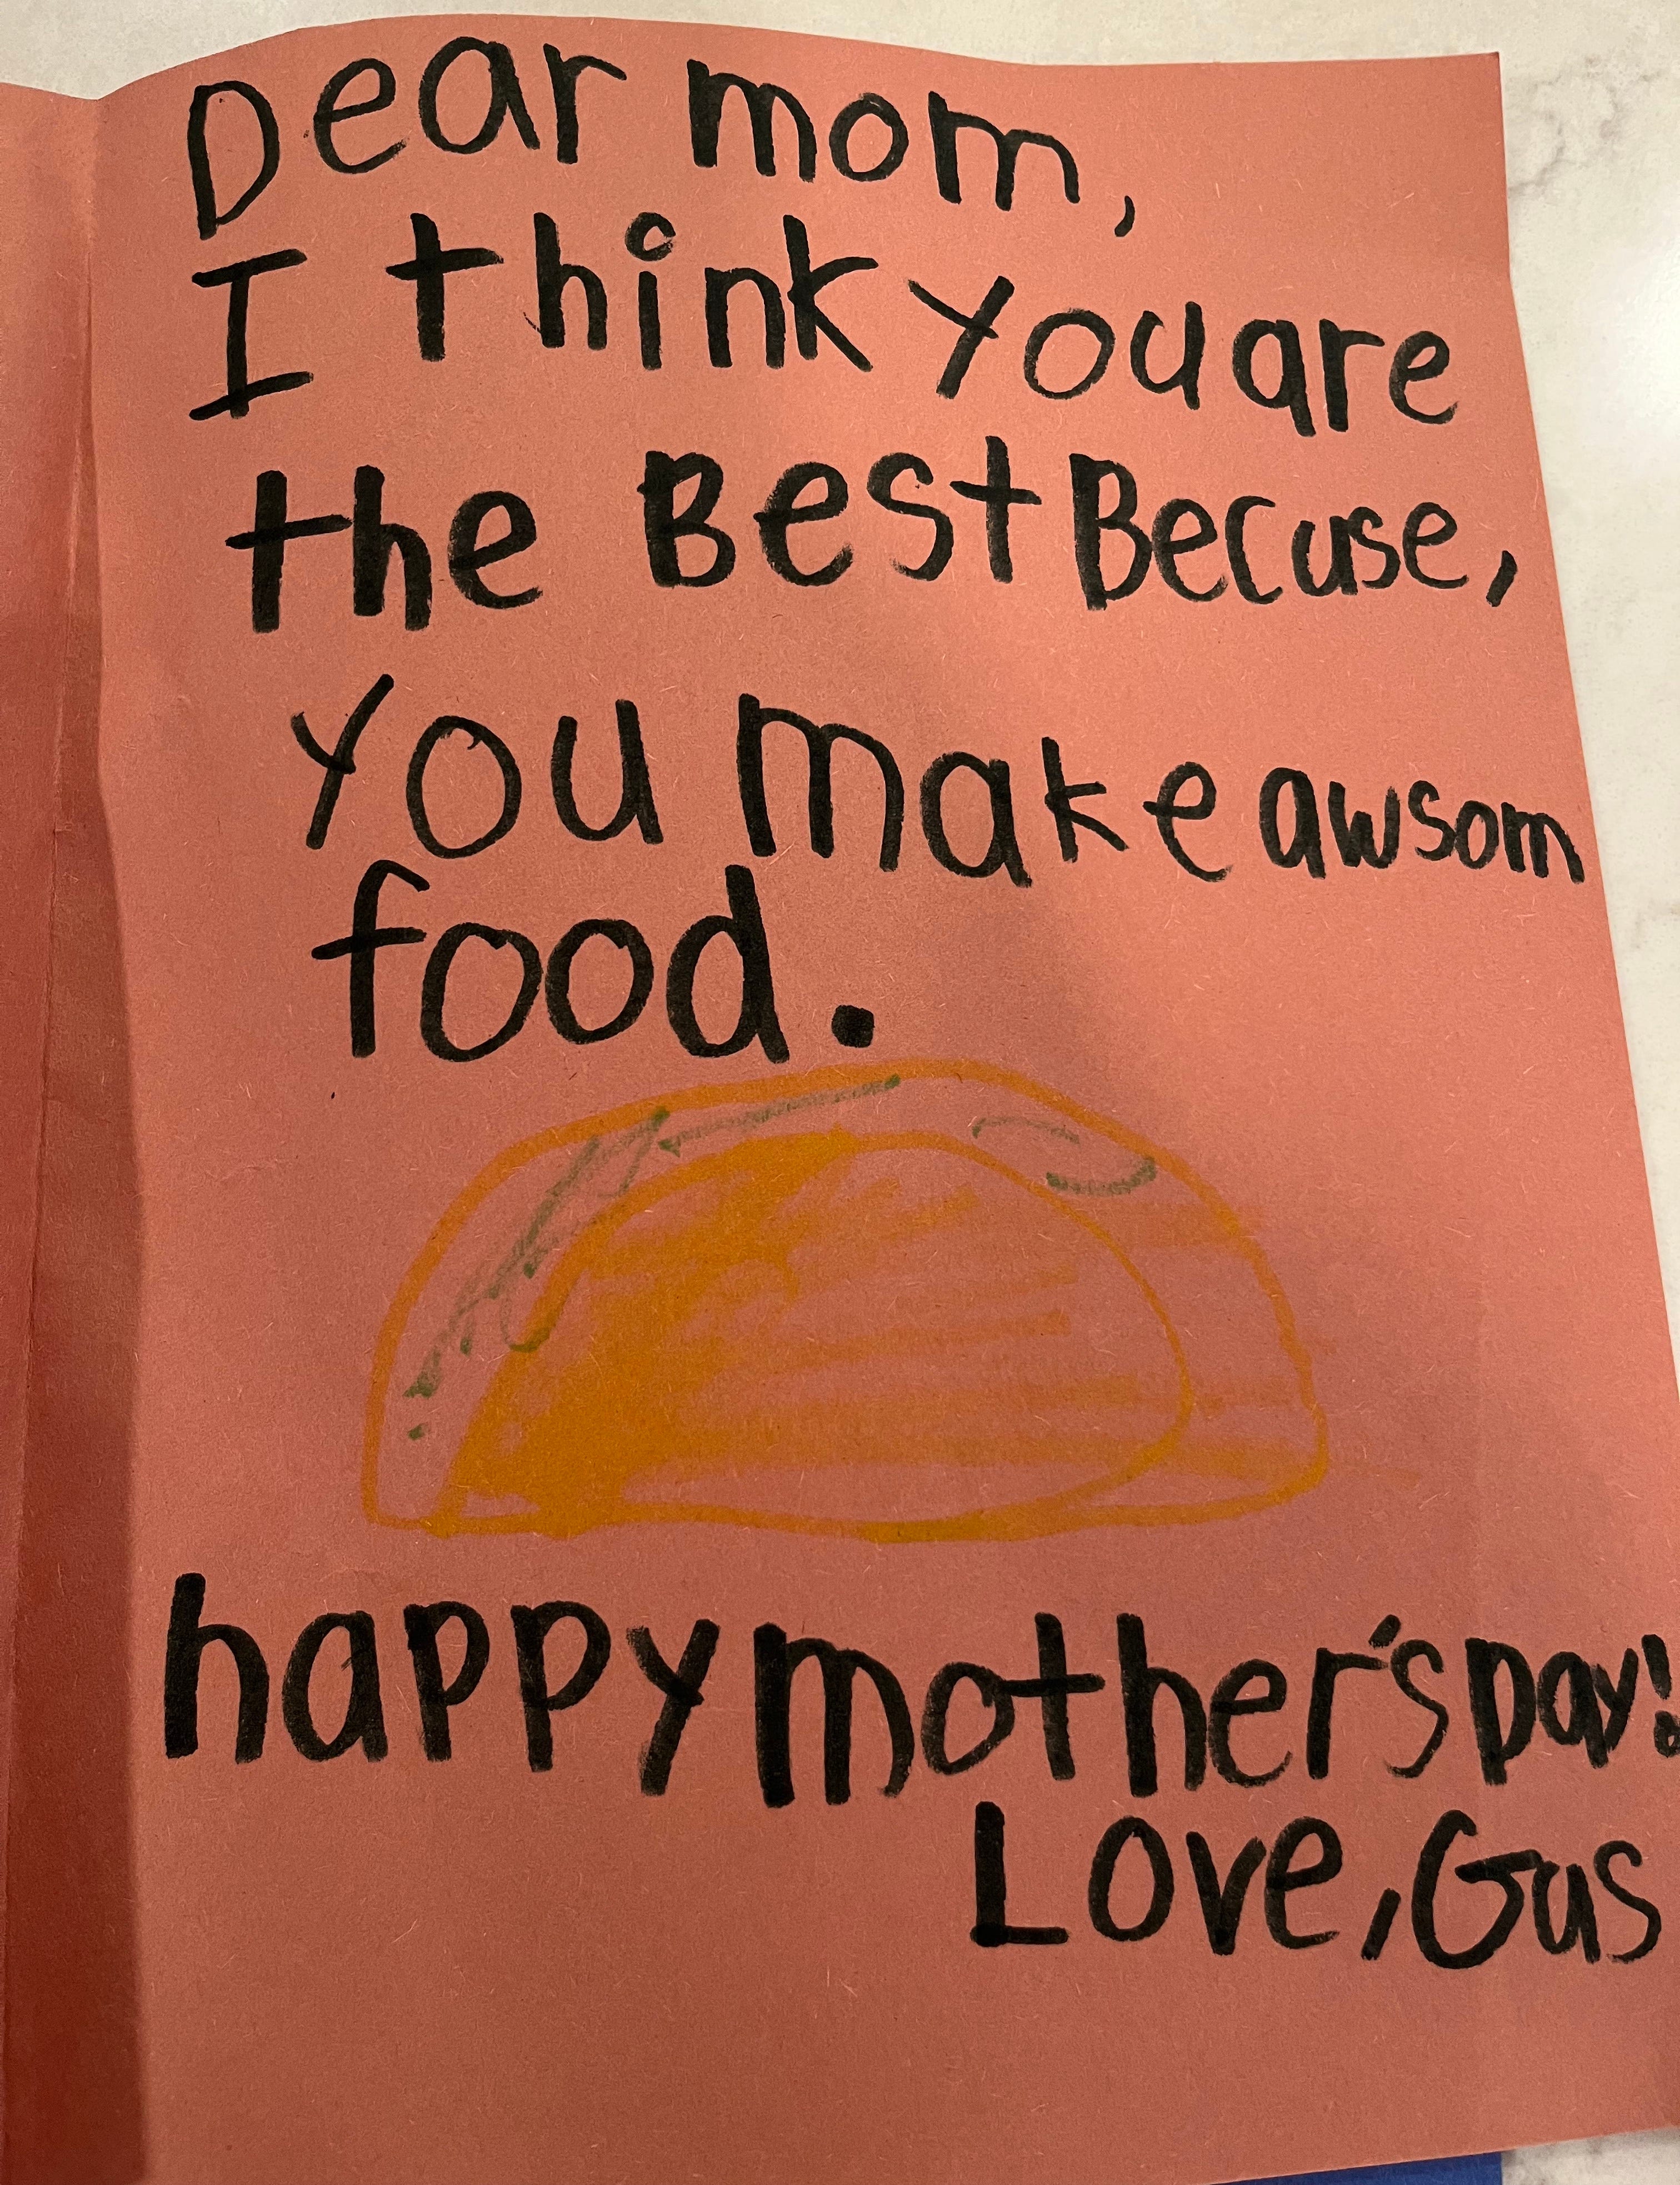 Dear mom,
I think you are
the Best Becuse,
you make awsom
food.
happy mother's Day!
Love, Gus